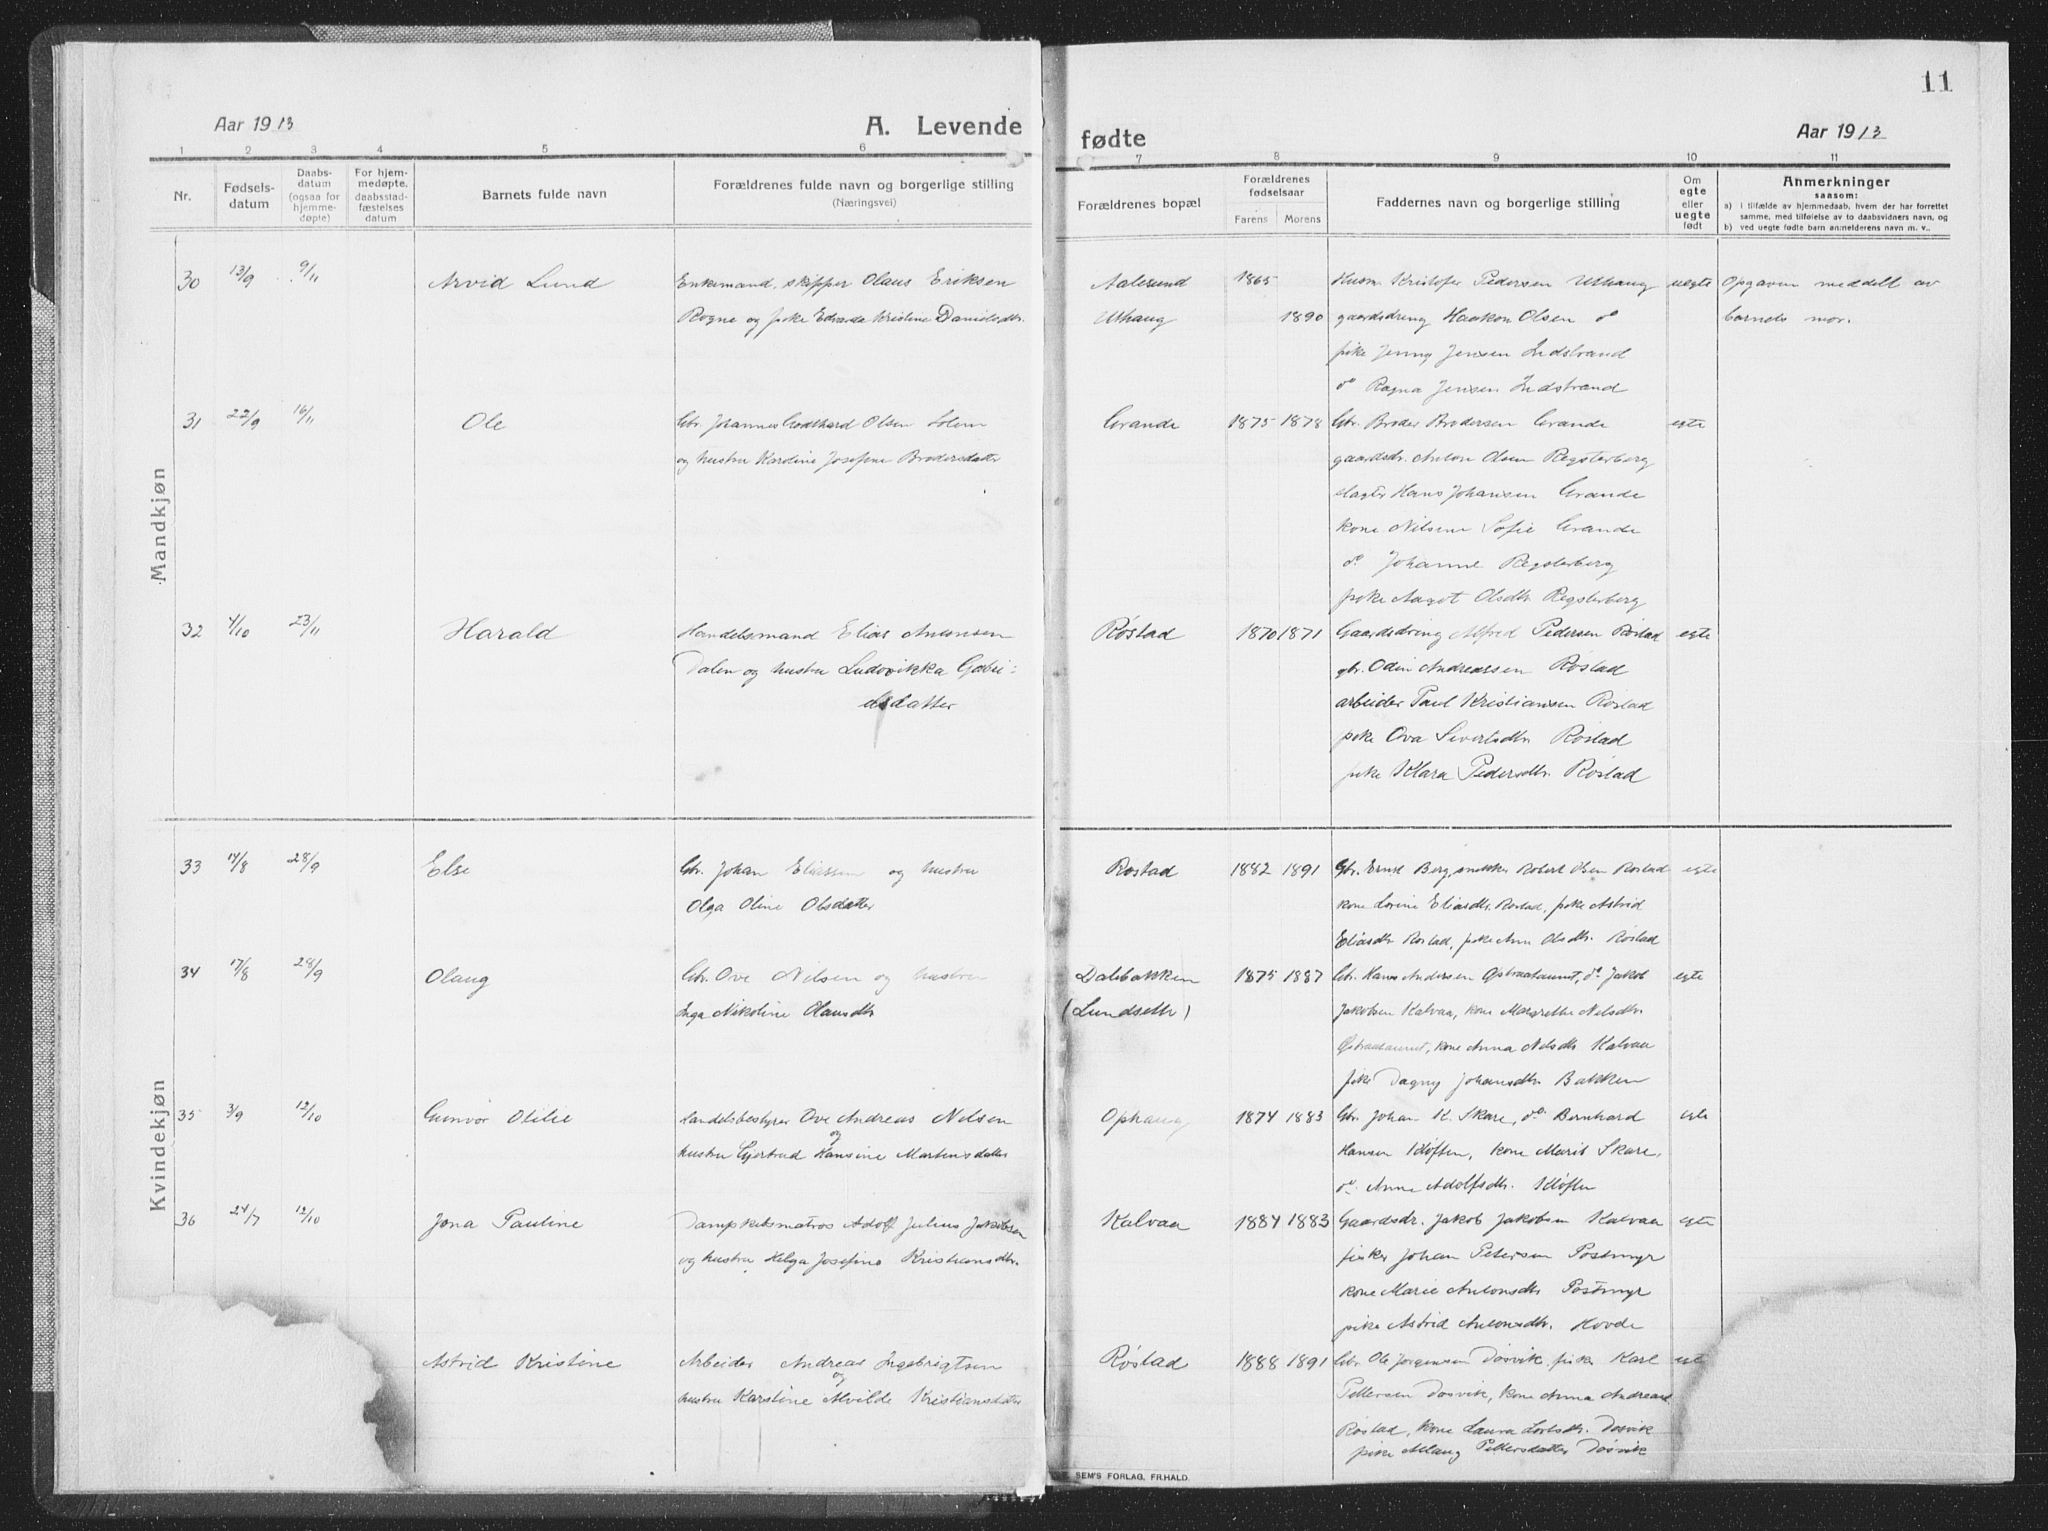 11
Aar 1913
A. Levende fødte
Aar 1913
1 2 3 4 5 6 7 8 9 10 11
Nr.
Fødsels-
datum
Daabs-
datum
(ogsaa for
hjemme-
døpte)
For hjem-
medøpte,
daabsstad-
fæstelses
datum
Barnets fulde navn
Forældrenes fulde navn og borgerlige stilling
(Næringsvei)
Forældrenes bopæl
Forældrenes
fødselsaar
Farens Morens
Faddernes navn og borgerlige stilling
Om
egte
eller
uegte
født
Anmerkninger
saasom:
a) i tilfælde av hjemmedaab, hvem der har forrettet
samme, med tilføielse av to daabsvidners navn, og
b) ved uegte fødte barn anmelderens navn m. v..
Mandkjøn
30 13/9 9/11 Arvid Lund Enkemand, skipper Olaus Eriksen Aalesund 1865 Kusm Kristofer Pedersen Uthaug uegte Opgaven meddelt av
Rogne og pike Edvarda Kristine Danielsdtr. Uthaug 1890 gaardsdreng Haakon Olsen do barnets mor.
pike Jenny Jensen Indstrand
do Ragna Jensen Indstrand
31 22/9 16/11 Ole Gbr. Johannes Godthard Olsen Solem Grande 1875 1878 Gbr. Broder Brodersen Grande egte
og hustru Kardine Josefine Brodersdatter gaardsdr. Anton Olsen Regsterberg
slagter Hans Johansen Grande
kone Nilsine Sofie Grande
do Johanne Regsterberg
pike Aagot Olsdtr. Regsterberg
32 4/10 23/11 Harald Handelsmand Elias Antonsen Røstad 1870 1871 Gaardsdreng Alfred Pedersen Røstad egte
Dalen og hustru Ludovikka Gabri- gbr. Odin Andreassen Røstad
elsdatter arbeider Paul Kristiansen Røstad
pike Ova Sivertsdtr Røstad
pike Klara Pedersdtr. Røstad
Kvindekjøn
33 14/8 28/9 Else Gbr. Johan Eliassen og hustru Røstad 1882 1891 Gbr. Ernst Berg, snekker Robert Olsen Røstad egte
Olga Oline Olsdatter kone Lovine Eliasdtr. Røstad, pike Astrid
Eliasdtr Røstad, pike Ann Olsdtr. Røstad
34 17/8 28/9 Olaug Gbr. Ove Nilsen og hustru Dalebakken 1875 1887 Gbr. Hans Andersen Opstraataunet, do Jakob egte
Inga Nikoline Olausdtr (Lundseth) Jakobsen Kalvaa, kone Margrethe Nilsdtr.
Østraataunet, kone Anna Nilsdtr Kalvaa
pike Dagny Johansdtr. Bakken
35 3/9 12/10 Gunvor Otilie Handelsbestyrer Ove Andreas Nilsen Ophaug 1874 1883 Gbr. Johan K. Skare, do. Bernhard egte
og
hustru Gjertrud Hansine Martensdatter Hansen Kløften, kone Marit Skare,
do. Anne Adolfsdtr. Kløften
36 24/7 12/10 Jona Pauline Dampskibsmatros Adolf Julius Jakobsen Kalvaa 1884 1883 Gaardsdr. Jakob Jakobsen Kalvaa egte
og hustru Helga Josefine Kristiansdtr. fisker Johan Petersen Postmyr
kone Marie Antonsdtr Postmyr
pike Astrid Antonsdtr. Hovde
Astrid Kristine Arbeider Andreas Ingebrigtsen Røstad 1888 1891 Gbr. Ole Jørgensen Døsvik, fisker Karl egte
og
hustru Karstine Alvilde Kristiansdatter Pettersen Døsvik, kone Anna Andreasd
Røstad, kone Laura Døsvik
pike Petersdatter Døsvik
SEM'S FORLAG, FR.HALD.